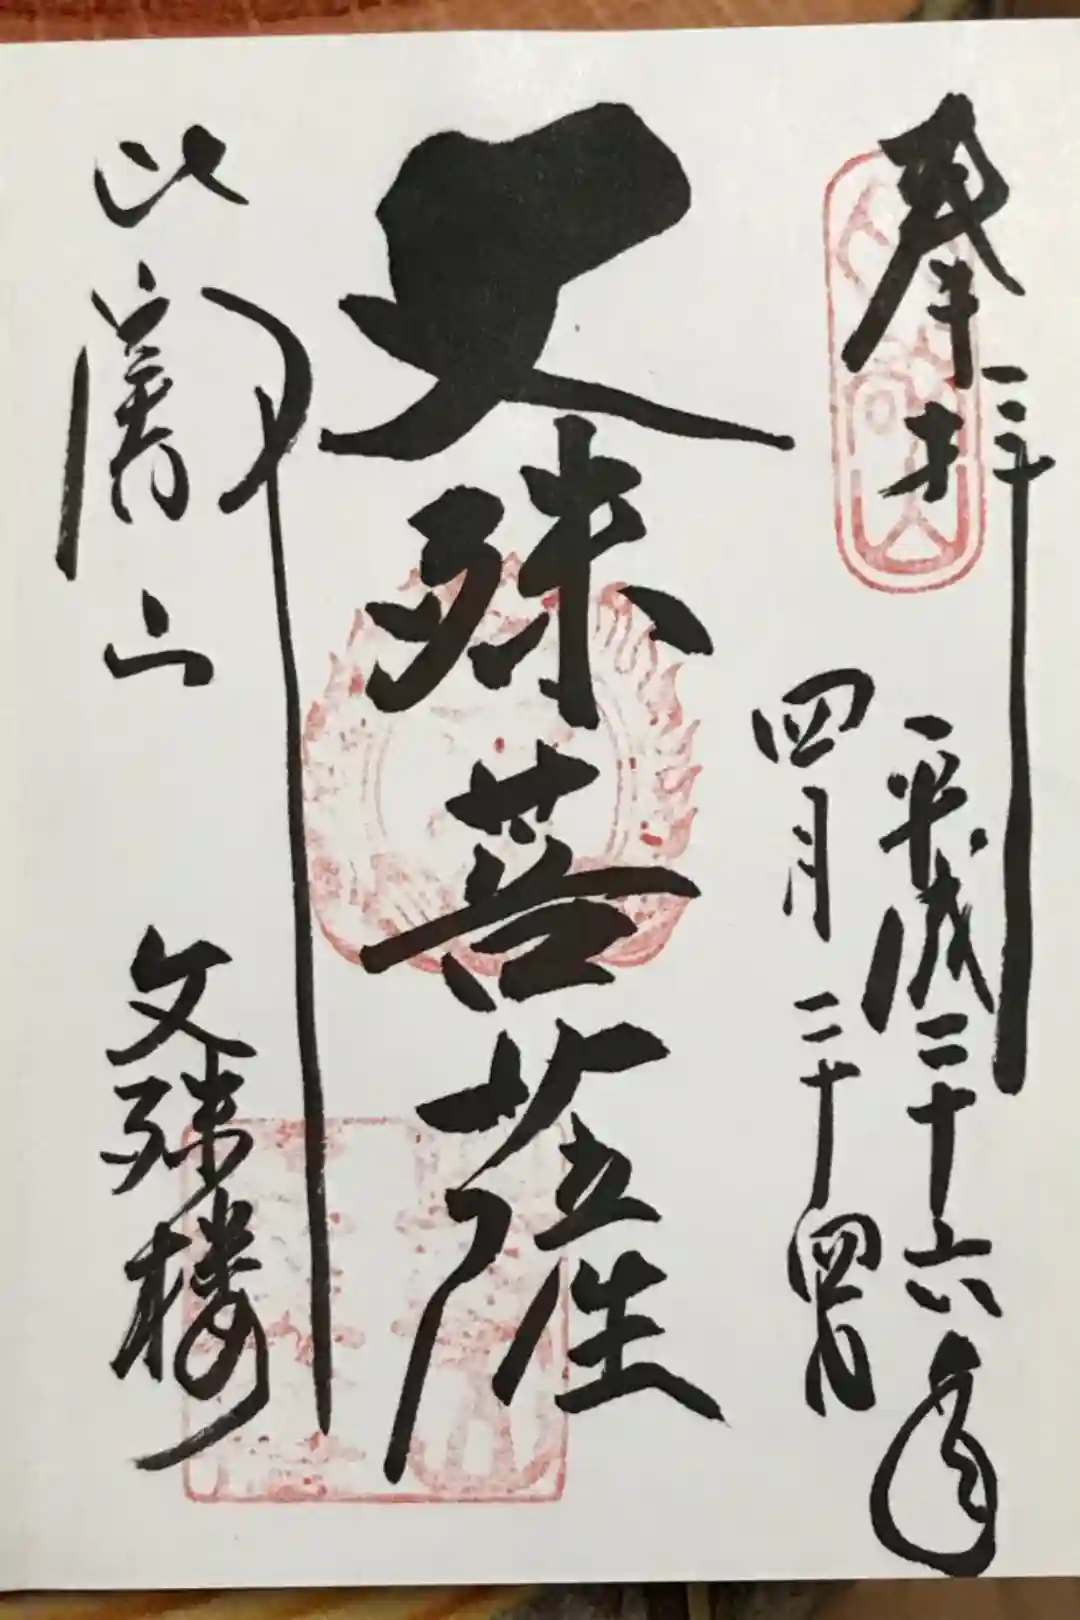 奉拝
平成二十六年
四月二十四日
文殊菩薩
比叡山 文殊楼